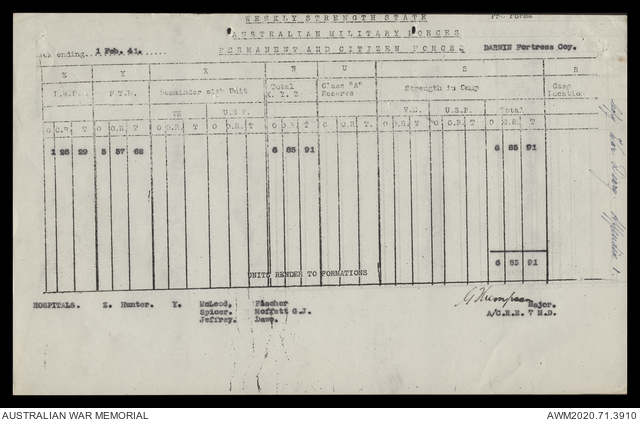 WEEKLY STRENGTH STATE
AUSTRALIAN MILITARY FORCES
ending. 1 Feb. 41. PERMANENT AND CITIZEN FORCES DARWIN Fortress Coy.
Z Y X R U S R
P.T.D. Remainder with Unit Total X. Y. Z Class "A" Reserve Strength in Camp Camp Location
U.S.F. V.E. U.S.F. Total
O O.R. T O O.R. T O O.R. T O O.R. T O O.R. T O O.R. T. O O.R. T O O.R. T O O.R. T
1 28 29 5 57 62 6 85 91 6 85 91
6 85 91
UNITS RENDER TO FORMATIONS
HOSPITALS. Z. Hunter. Y. McLeod, Fischer
Spicer. Moffatt G.J.
Jeffrey. Dawe.
Major.
A/C.R.E. 7 M.D.
War Diary Appendix 1.
AUSTRALIAN WAR MEMORIAL AWM2020.71.3910